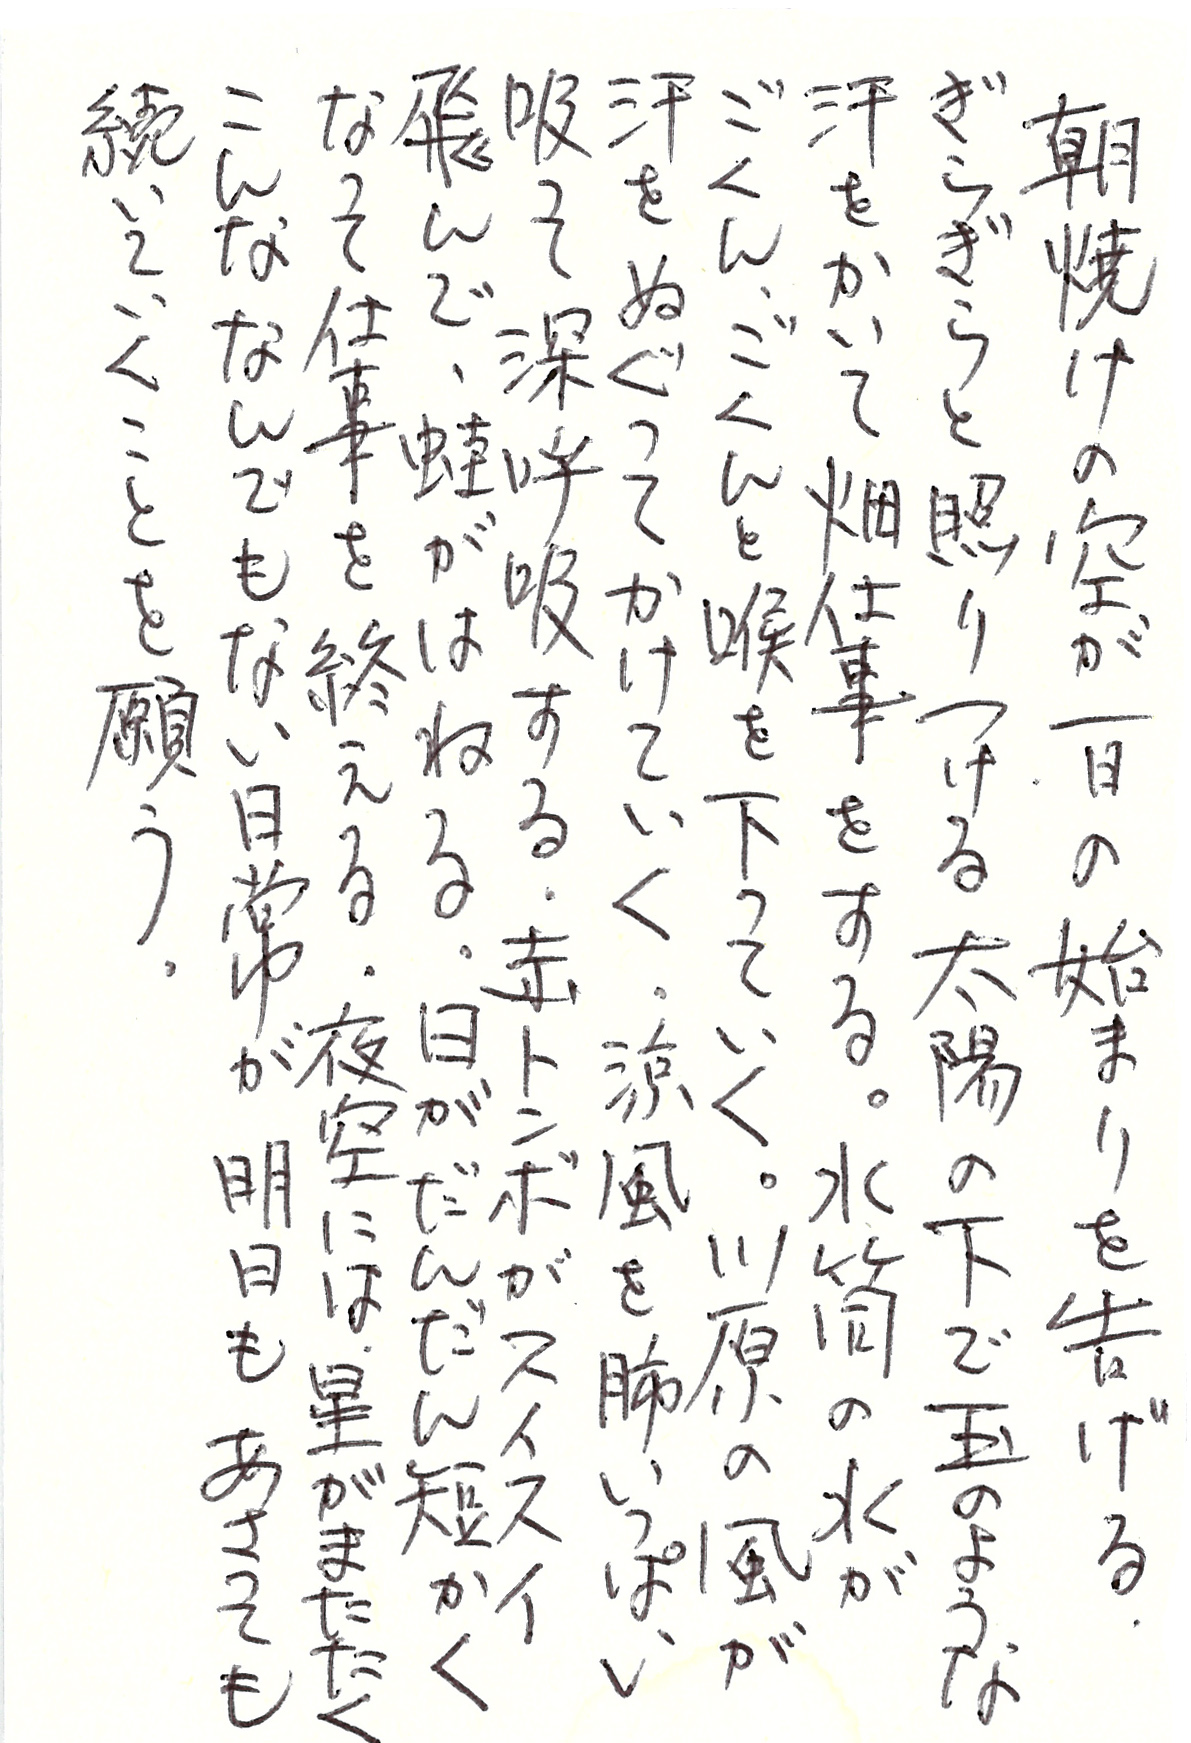 朝焼けの空が一日の始まりを告げる.
ぎらぎらと照りつける太陽の下で玉のような
汗をかいて畑仕事をする。水筒の水が
ごくん、ごくんと喉を下っていく。川原の風が
汗をぬぐってかけていく.涼風を肺いっぱい
吸って深呼吸する.赤トンボがスイスイ
飛んで、蛙がはねる.日がだんだん短かく
なって仕事を終える.夜空には星がまたたく
こんななんでもない日常が明日もあさっても
続いていくことを願う.